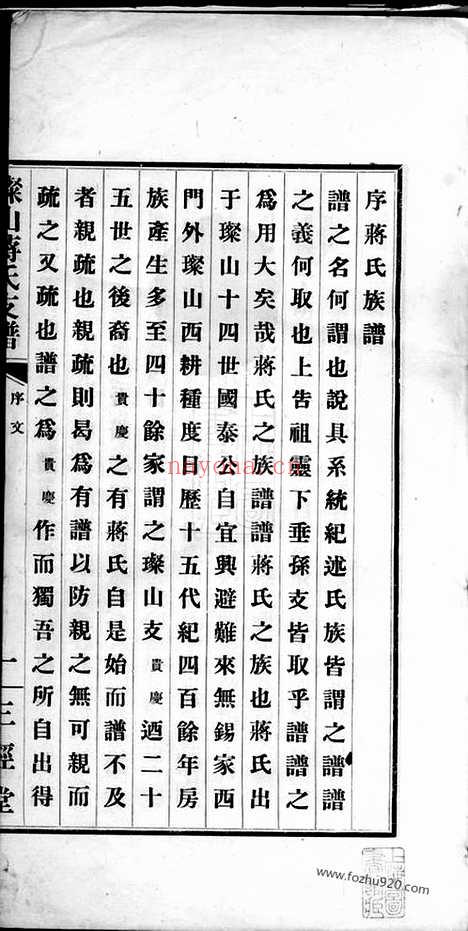 序蔣氏族譜
譜之名何謂也說具系統紀述氏族皆謂之譜譜
之義何取也上告祖靈下垂孫支皆取乎譜譜之
為用大矣哉蔣氏之族譜譜蔣氏之族也蔣氏出
于璨山十四世國泰公自宜興避難來無錫家西
門外璨山西耕種度日歷十五代紀四百餘年房
族產生多至四十餘家謂之璨山支貴慶迺二十
五世之後裔也貴慶之有蔣氏自是始而譜不及
者親疏也親疏則曷為有譜以防親之無可親而
疏之又疏也譜之為貴慶作而獨吾之所自出得
璨山蔣氏支譜
序文
一
三徑堂
nayona.cn
www.fozhu920.com